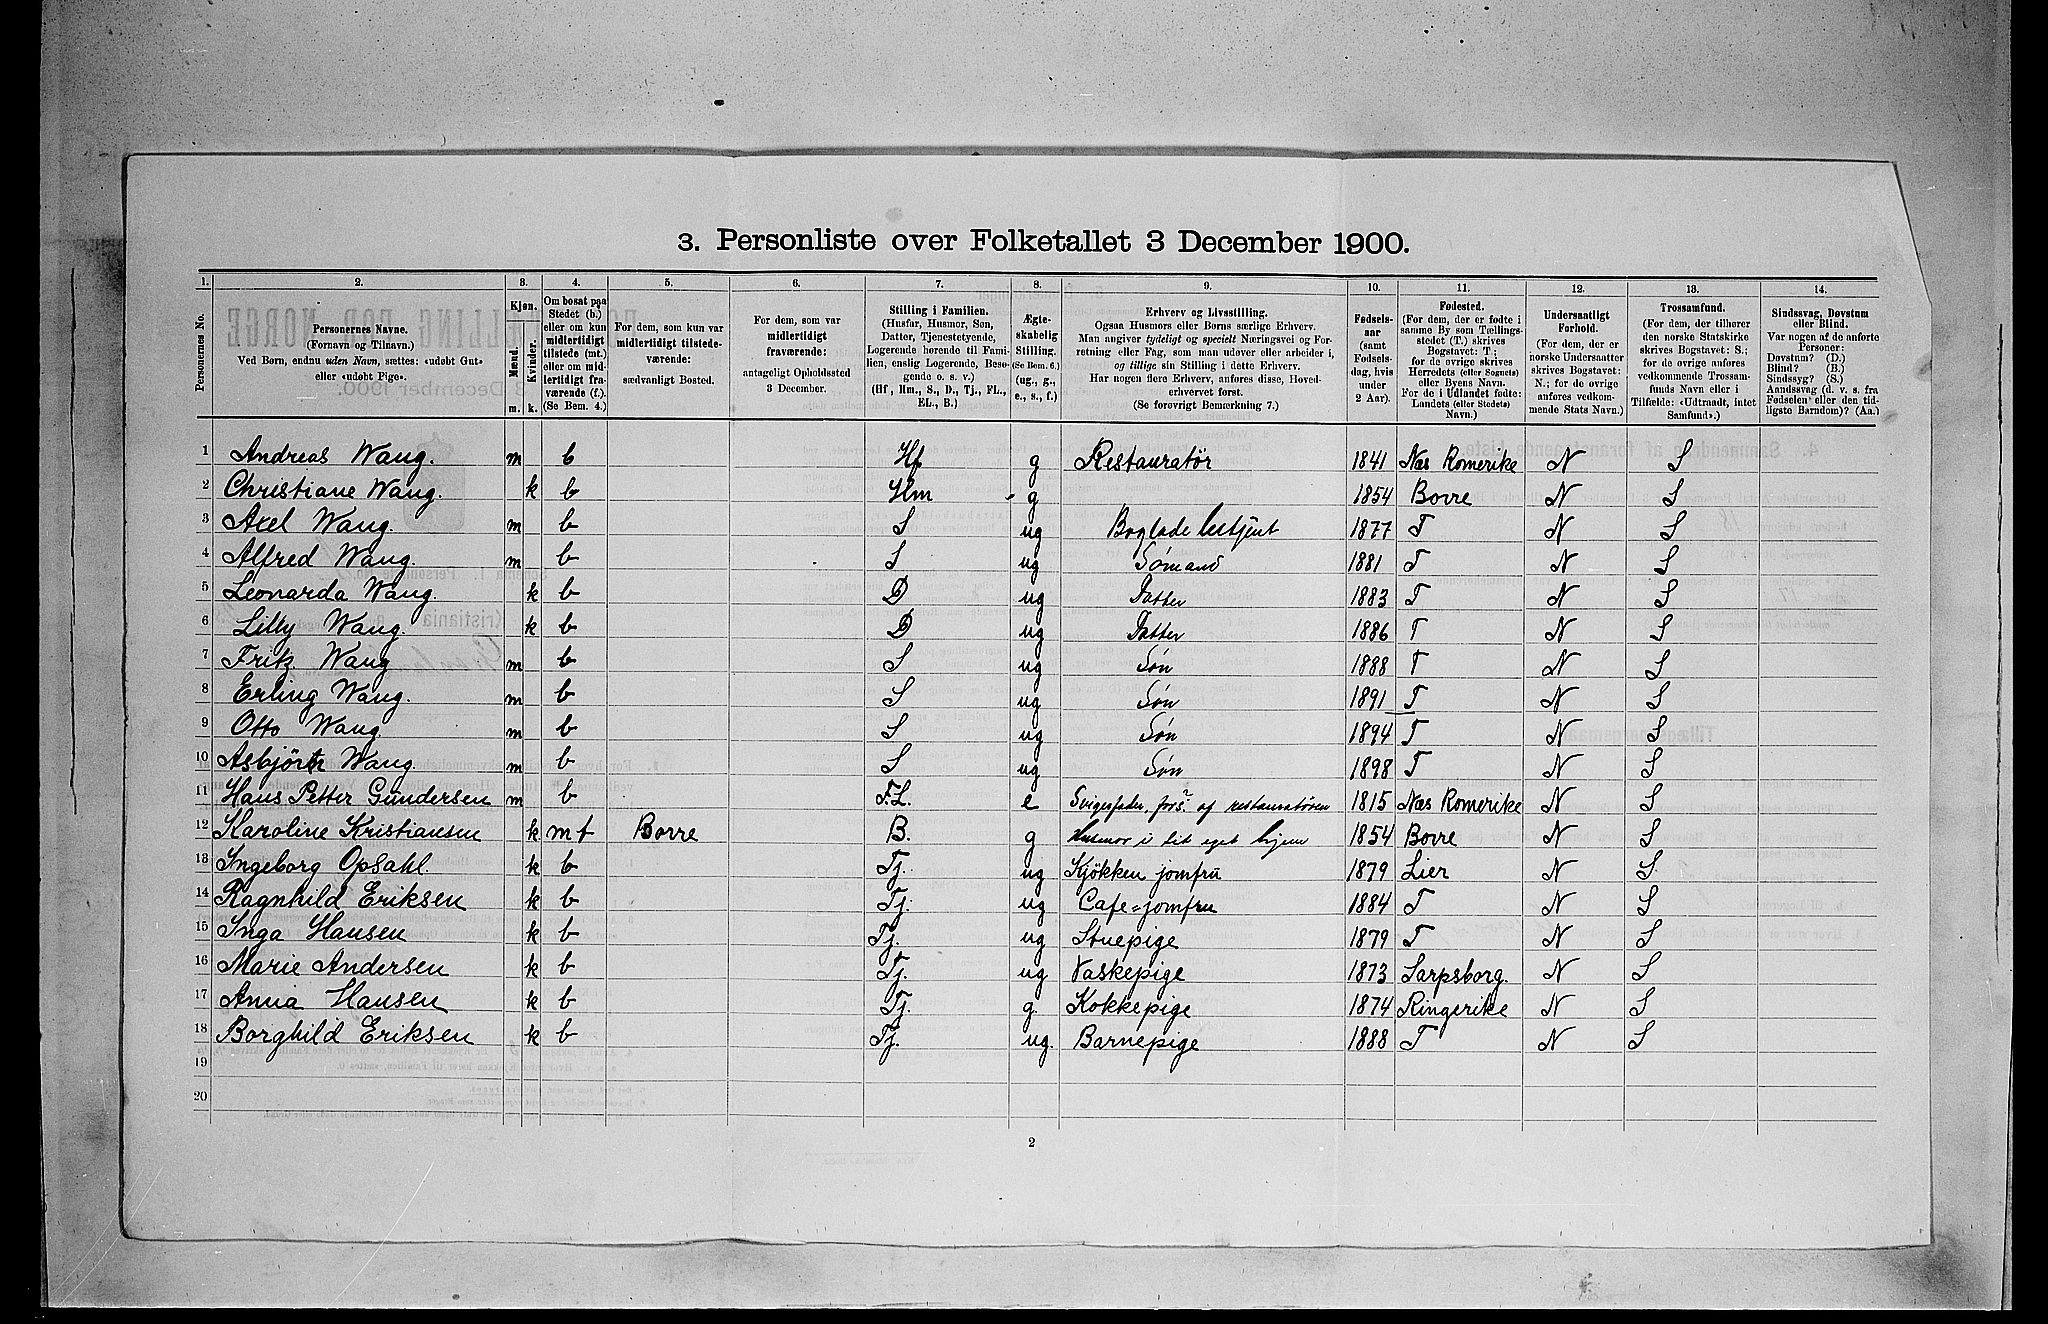 3. Personliste over Folketallet 3 December 1900.
1. 2. 3. 4. 5. 6. 7. 8. 9. 10. 11. 12. 13. 14.
Personernes No.
Personernes Navne.
(Fornavn og Tilnavn.)
Ved Børn, endnu uden Navn, sættes: «udøbt Gut»
eller «udøbt Pige».
Kjøn.
Mænd.
Kvinder.
m. k.
Om bosat paa
Stedet (b.)
eller om kun
midlertidigt
tilstede (mt.)
eller om mid-
lertidigt fra-
værende (f.).
(Se Bem. 4.)
For dem, som kun var
midlertidigt tilstede-
værende:
sædvanligt Bosted.
For dem, som var
midlertidigt
fraværende:
antageligt Opholdssted
3 December.
Stilling i Familien.
(Husfar, Husmor, Søn,
Datter, Tjenestetyende,
Logerende hørende til Fami-
lien, enslig Logerende, Besø-
gende o. s. v.)
(Hf, Hm., S., D., Tj., FL.,
EL., B.)
Ægte-
skabelig
Stilling.
(Se Bem. 6.)
(ug., g.,
e., s., f.)
Erhverv og Livsstilling.
Ogsaa Husmors eller Børns særlige Erhverv.
Man angiver tydeligt og specielt Næringsvei og For-
retning eller Fag, som man udøver eller arbeider i,
og tillige sin Stilling i dette Erhverv.
Har nogen flere Erhverv, anføres disse, Hoved-
erhvervet først.
(Se forøvrigt Bemerkning 7.)
Fødsels-
aar
(samt
Fødsels-
dag, hvis
under
2 Aar).
Fødested.
(For dem, der er fødte i
samme By som Tællings-
stedet (T.) skrives
Bogstavet: T;
for de øvrige skrives
Herredets (eller Sognets)
eller Byens Navn.
For de i Udlandet fødte:
Landets (eller Stedets)
Navn.)
Undersaatligt
Forhold.
(For dem, der er
norske Undersaatter
skrives Bogstavet:
N.; for de øvrige
anføres vedkom-
mende Stats Navn.)
Trossamfund.
(For dem, der tilhører
den norske Statskirke
skrives Bogstavet: S.;
for de øvrige anføres
vedkommende Trossam-
funds Navn eller i
Tilfælde: «Udtraadt, intet
Samfund».)
Sindssvag, Døvstum
eller Blind.
Var nogen af de anførte
Personer:
Døvstum? (D.)
Blind? (B.)
Sindssyg? (S.)
Aandssvag (d. v. s. fra
Fødselen eller den tid-
ligste Barndom)? (Aa.)
1 Andreas Wang. m b Hf g Restauratør 1841 Næs Romerike N S
2 Christiane Wang. k b Hm g 1854 Borre N S
3 Axel Wang. m b S ug Boglade betjent 1877 T N S
4 Alfred Wang. m b S ug Sømand 1881 T N S
5 Leonarda Wang. k b D ug Datter 1883 T N S
6 Lilly Wang. k b D ug Datter 1886 T N S
7 Fritz Wang m b S ug Søn 1888 T N S
8 Erling Wang. m b S ug Søn 1891 T N S
9 Otto Wang. m b S ug Søn 1894 T N S
10 Asbjörn Wang. m b S ug Søn 1898 T N S
11 Hans Petter Gundersen m b F.L. e Svigesfader, fors. af restauratøren 1815 Næs Romerike N S
12 Karoline Kristiansen k mt Borre B. g Husmor i sit eget hjem 1854 Borre N S
13 Ingeborg Opsahl. k b Tj. ug Kjökken jomfru 1879 Lier N S.
14 Ragnhild Eriksen k b Tj. ug Cafe=jomfru 1884 T N S
15 Inga Hansen k b Tj. ug Stuepige 1879 T N S
16 Marie Andersen k b Tj. ug Vaskepige 1873 Sarpsborg. N S
17 Anna Hansen k b Tj. g. Kokkepige 1874 Ringerike N S
18 Borghild Eriksen k b Tj. ug. Barnepige 1888 T N S
19
20
2